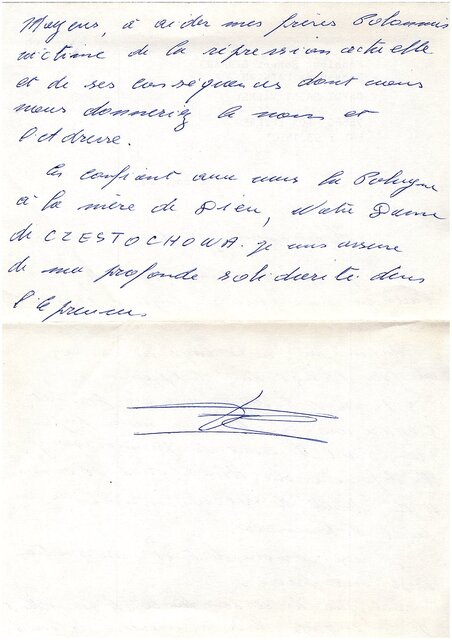 Moyens, à aider mes frères Polonais
victime de la répression actuelle
et de ses conséquences dont vous
nous donneriez le nom et
l'Adresse.
En confiant avec vous la Pologne
à la mère de Dieu, Notre Dame
de CZESTOCHOWA. je vous assure
de ma profonde solidarité dans
l'épreuve